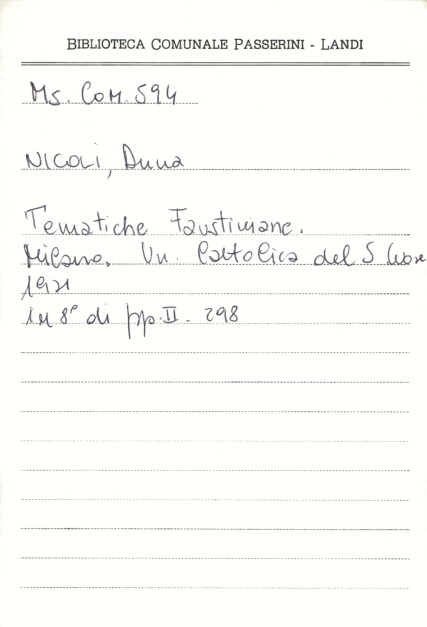 BIBLIOTECA COMUNALE PASSERINI - LANDI
Ms. Com. 594
NICOLI, Anna
Tematiche Faustiniane.
Milano, Un. Cattolica del S. Cuore
1971
in 8° di pp. II - 298